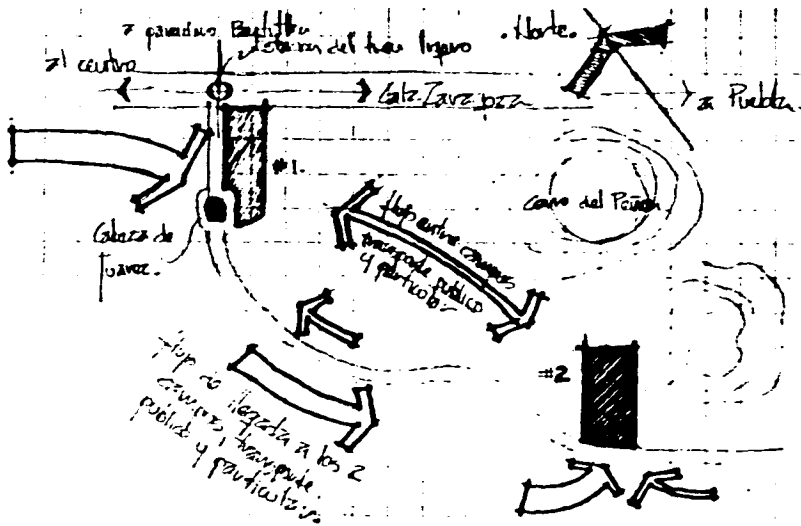 a paradero
Estacion del tren ligero
al centro
Calz. Zaragoza
.Norte.
a Puebla.
#1.
Cabeza de
Juarez.
cerro del Peñon
flujo entre campus
transporte publico
y particular
#2
flujo de llegada a los 2
campus, transporte
publico y particular.